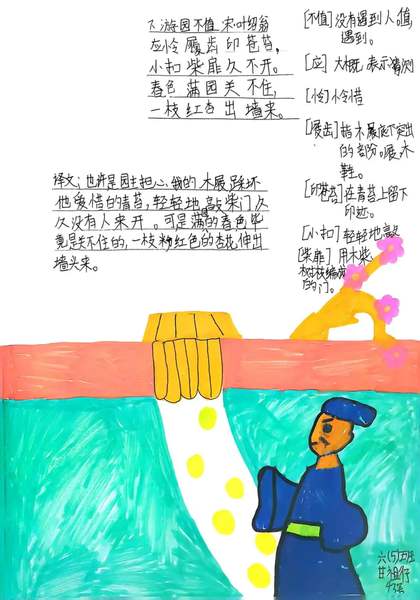 游园不值 宋 叶绍翁
应怜屐齿印苍苔,
小扣柴扉久不开。
春色满园关不住,
一枝红色出墙来。
译文:也许是园主担心,我的木屐踩坏
他爱惜的青苔,轻轻地敲柴门久
久没有人来开。可是满园的春色毕
竟是关不住的,一枝粉红色的杏花伸出
墙头来。
[不值]没有遇到人。值,
遇到。
[应] 大概,表示猜测
[怜]怜惜
[屐齿]指木屐底下突出
的部分。屐,木
鞋。
[印苍苔]在青苔上留下
印迹。
[小扣]轻轻地敲
[柴扉] 用木柴、
树枝编成
的门。
六(5)班
甘祖行